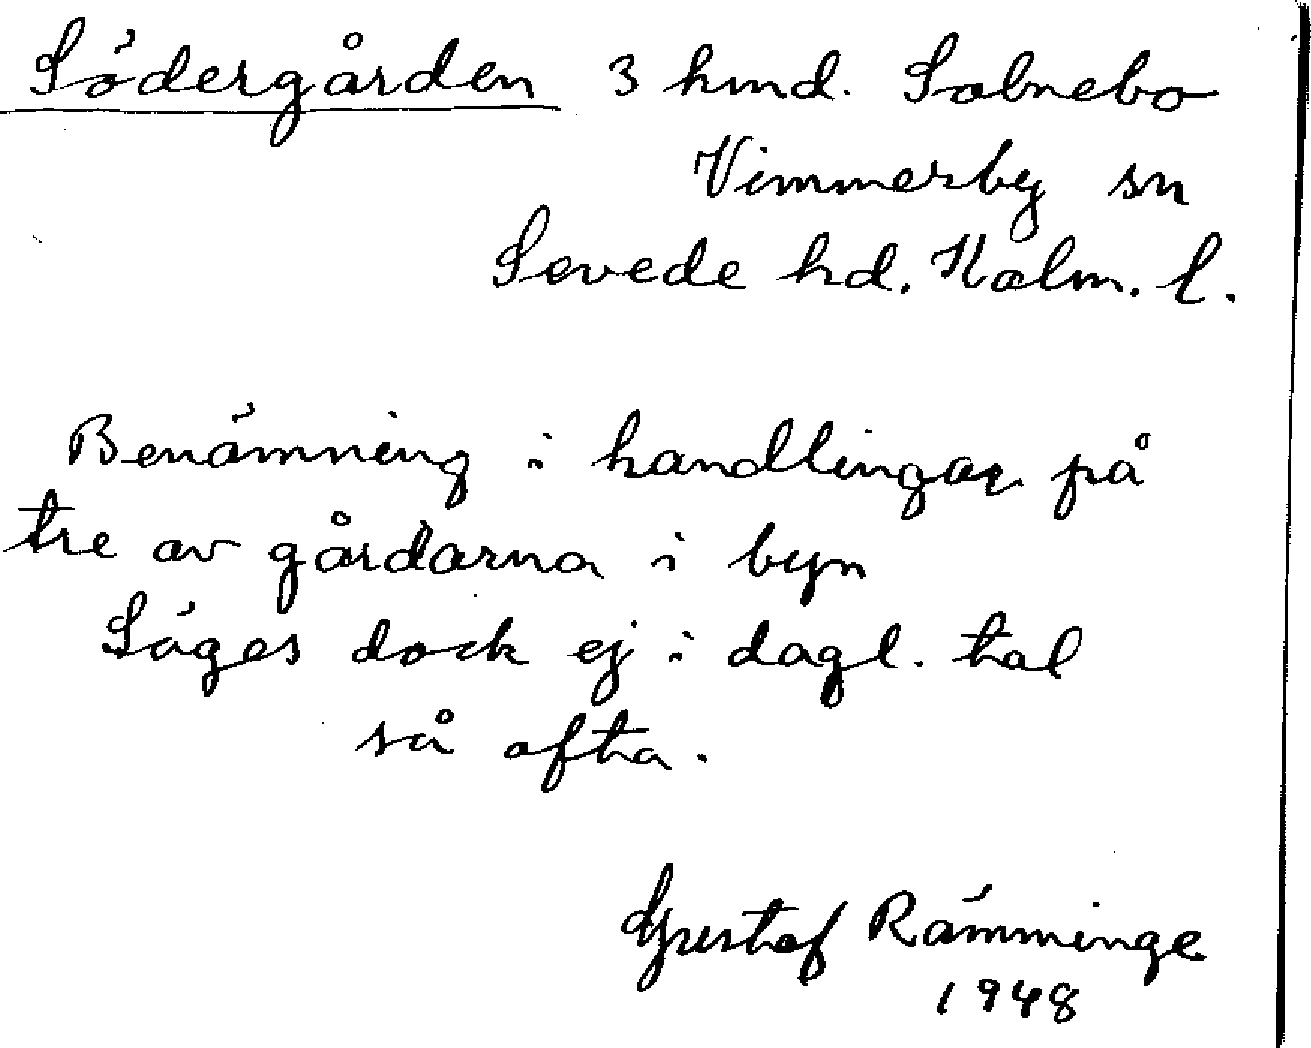 Södergården 3 hmd. Solnebo
Vimmerby sn
Sevede hd. Kalm. l.
Benämning i handlingar på
tre av gårdarna i byn
Säges dock ej i dagl. tal
så ofta.
Gustaf Rämminge
1948